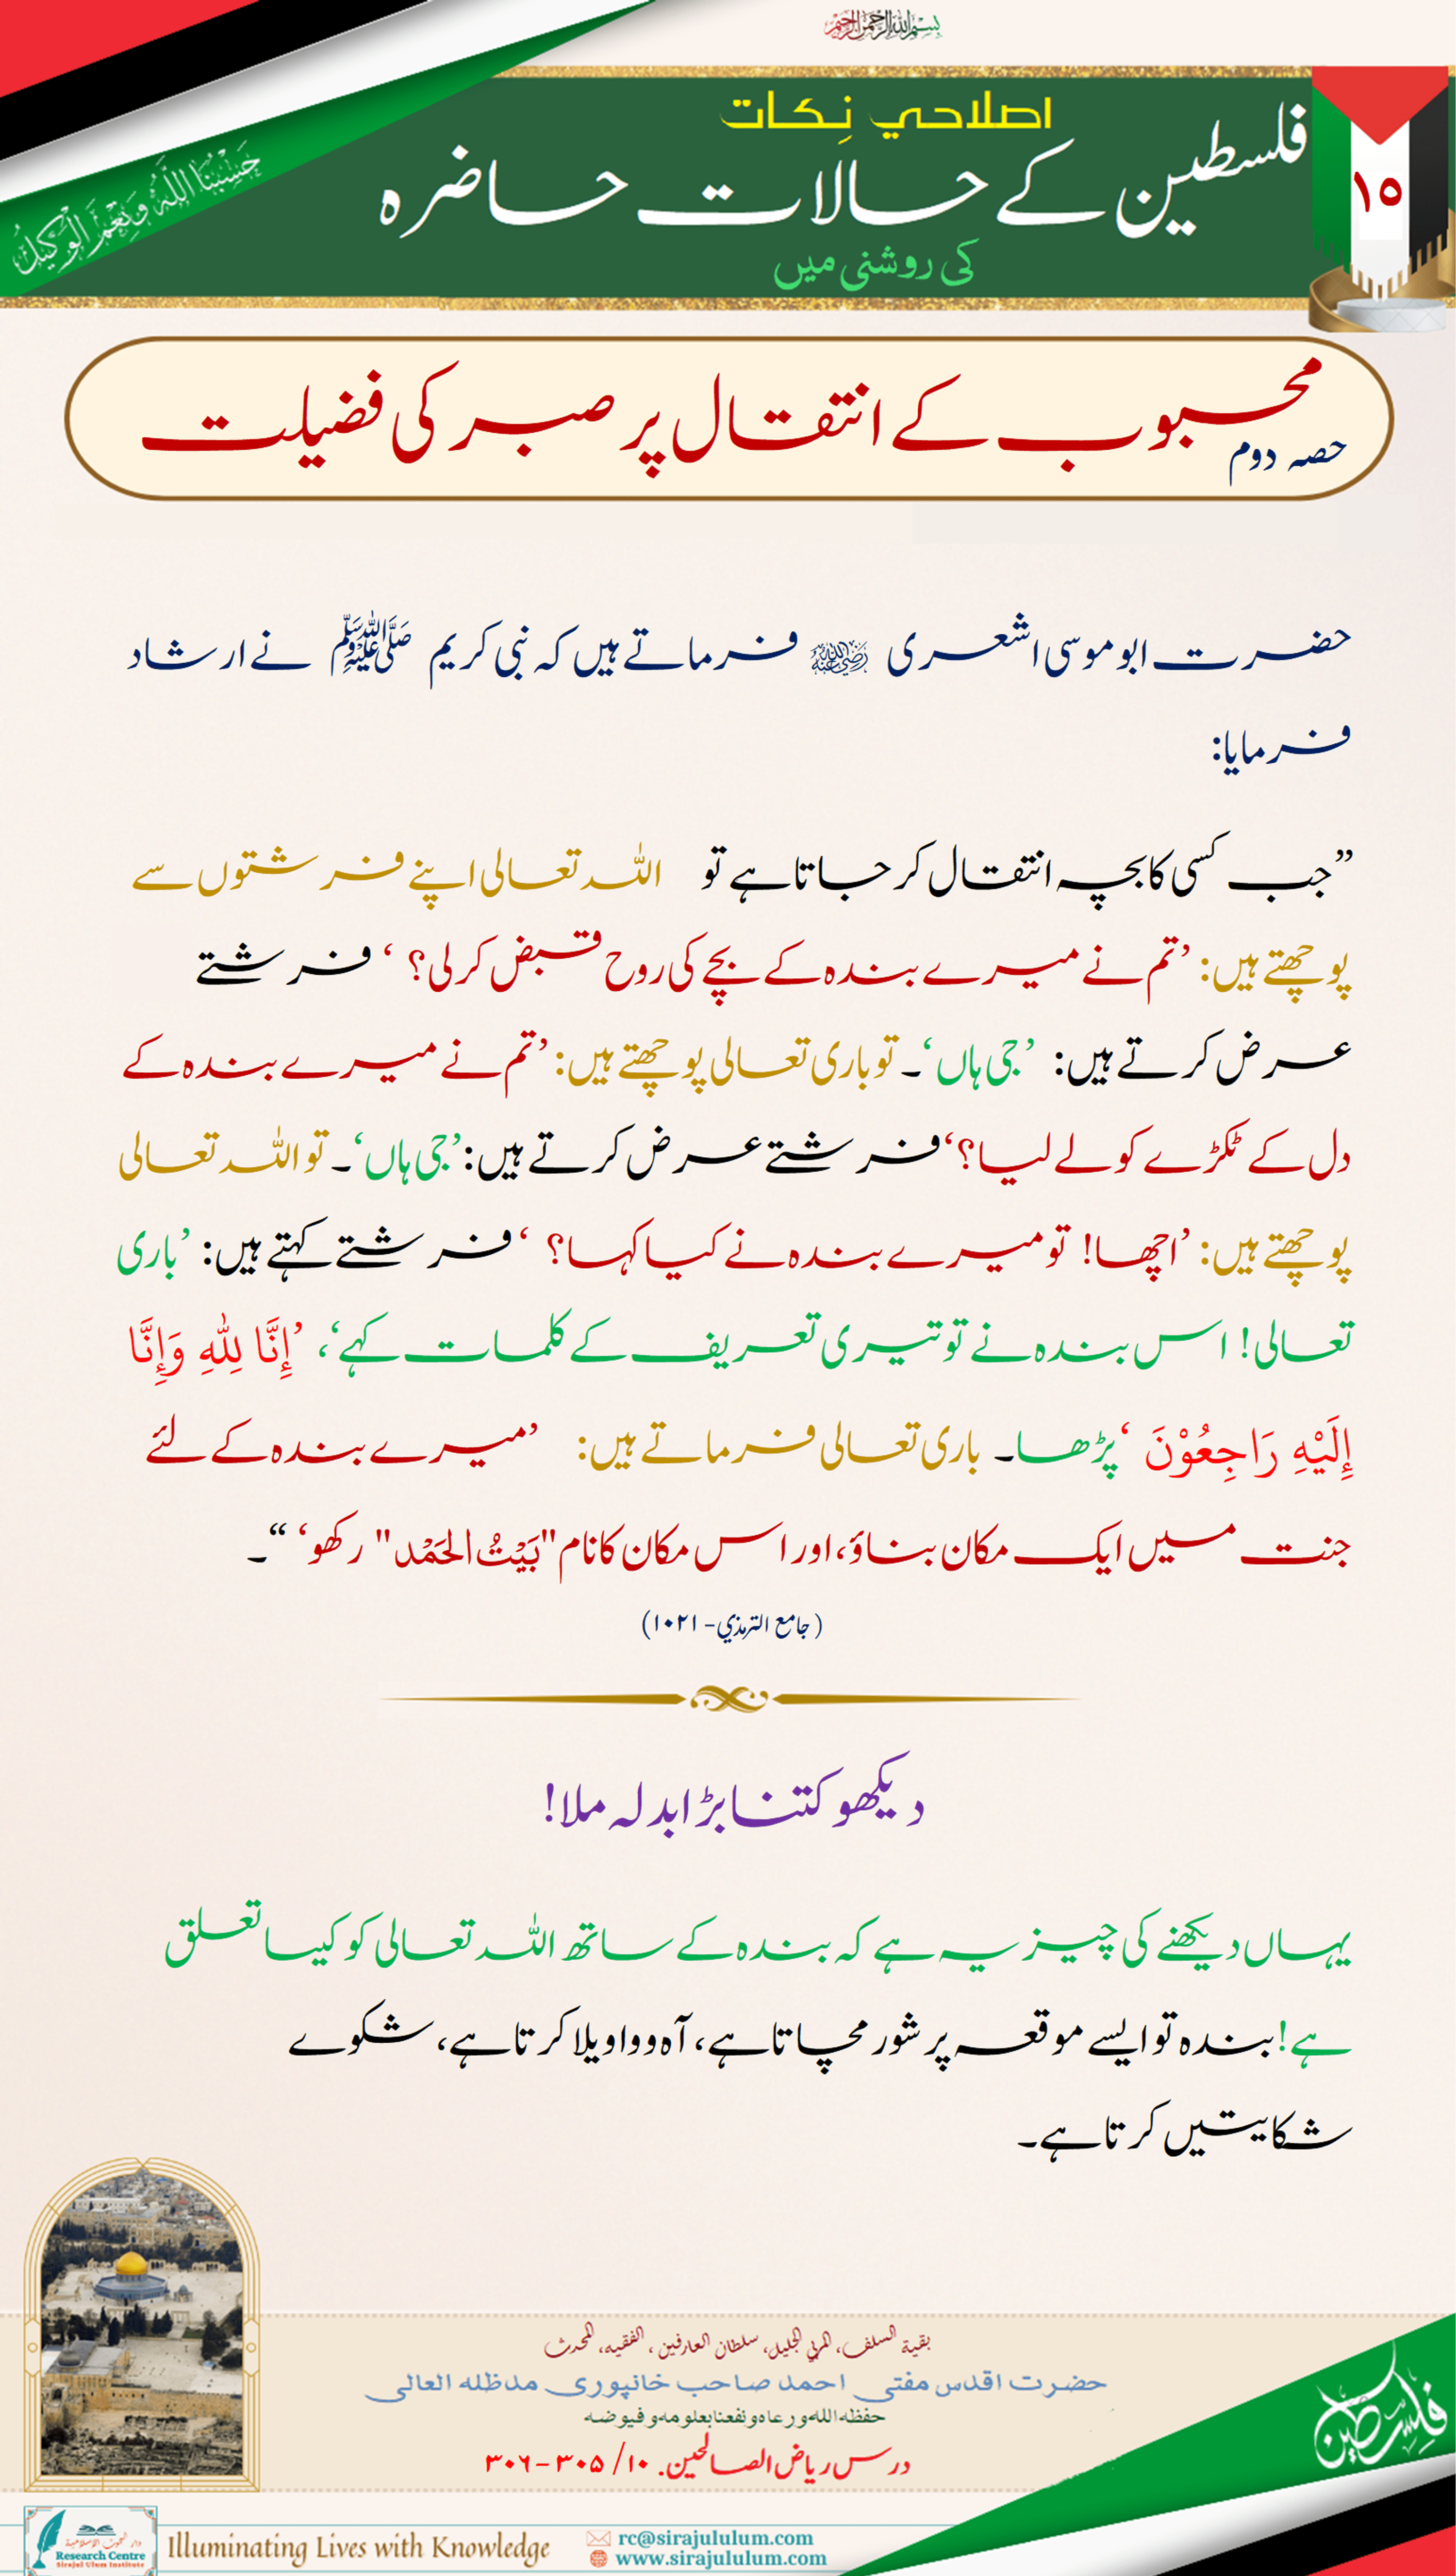 بسم الله الرحمن الرحيم
حَسْبُنَا اللَّهُ وَنِعْمَ الْوَكِيلُ
۱۵
اصلاحي نِكات
فلسطین کے حالات حاضرہ
کی روشنی میں
محبوب کے انتقال پر صبر کی فضیلت
حصہ دوم
حضرت ابو موسی اشعری رضي الله عنه فرماتے ہیں کہ نبی کریم ﷺ نے ارشاد
فرمایا:
”جب کسی کا بچہ انتقال کر جاتا ہے تو اللہ تعالی اپنے فرشتوں سے
پوچھتے ہیں: ’تم نے میرے بندہ کے بچے کی روح قبض کر لی؟ ‘ فرشتے
عرض کرتے ہیں: ’جی ہاں‘۔ تو باری تعالی پوچھتے ہیں: ’تم نے میرے بندہ کے
دل کے ٹکڑے کو لے لیا؟‘ فرشتے عرض کرتے ہیں: ’جی ہاں‘۔ تو اللہ تعالی
پوچھتے ہیں: ’اچھا! تو میرے بندہ نے کیا کہا؟ ‘ فرشتے کہتے ہیں: ’باری
تعالی! اس بندہ نے تو تیری تعریف کے کلمات کہے‘، ’إِنَّا لِلّٰهِ وَإِنَّا
إِلَيْهِ رَاجِعُوْنَ ‘ پڑھا۔ باری تعالی فرماتے ہیں: ’میرے بندہ کے لئے
جنت میں ایک مکان بناؤ، اور اس مکان کا نام "بَيْتُ الحَمْد" رکھو‘ “۔
(جامع الترمذي- ۱۰۲۱)
دیکھو کتنا بڑا بدلہ ملا!
یہاں دیکھنے کی چیز یہ ہے کہ بندہ کے ساتھ اللہ تعالی کو کیسا تعلق
ہے! بندہ تو ایسے موقعہ پر شور مچاتا ہے، آہ و واویلا کرتا ہے، شکوے
شکایتیں کرتا ہے۔
بقية السلف، المربي الجليل، سلطان العارفين، الفقيه، المحدث
حضرت اقدس مفتی احمد صاحب خانپوری مدظلہ العالی
حفظه الله ورعاه ونفعنا بعلومه وفيوضه
درس ریاض الصالحین. ۱۰/ ۳۰۵-۳۰۶
فلسطين
دار البحوث الإسلامية
Research Centre
Sirajul Ulum Institute
Illuminating Lives with Knowledge
rc@sirajululum.com
www.sirajululum.com